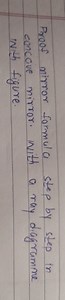 Proof mirror formula step by step in
concave mirror. with a ray diagramme
with figure